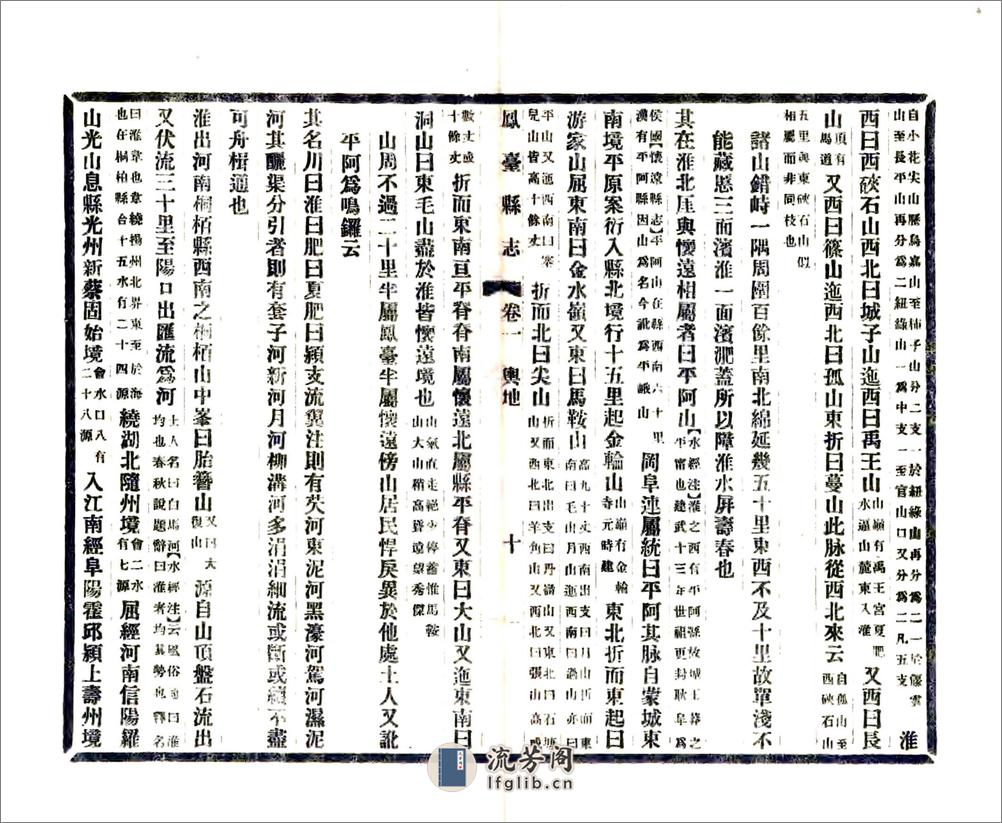 自小花尖山歷烏嘉山至柿子山分二支一於紐綠山再分爲二一於優雲
山至長平山再分爲二紐綠山一爲中支一至官山口又分爲二凡五支
淮
西曰西硤石山西北曰城子山迤西曰禹王山山嶺有禹王宮夏肥水逼山麓東入淮又西曰長
山頂有馬道又西曰篠山迤西北曰孤山東折曰蔓山此脉從西北來云自孤山至西硤石山
五里與東硤石山似
相屬而非同枝也
諸山錯峙一隅周圍百餘里南北綿延幾五十里東西不及十里故單淺不
能藏慝三面濱淮一面濱淝蓋所以障淮水屏壽春也
其在淮北厓與懷遠相屬者曰平阿山【水經注】淮之西有平阿縣故城王莽之平甯也建武十三年世祖更封耿阜爲
侯國【懷遠縣志】平阿山在縣西南六十里
漢有平阿縣因山爲名今訛爲平峨山
岡阜連屬統曰平阿其脉自蒙城東
南境平原案衍入縣北境行十五里起金輪山山嶺有金輪寺元時建東北折而東起曰
游家山屈東南曰金水嶺又東曰馬鞍山高九十丈西南出支曰月山折而東南曰毛山月山迤西南曰潞山亦曰
平山又迤西南曰寨
兒山皆高十餘丈
折而北曰尖山折而東北出支曰丹潞山又西北曰石塘山又西北曰羊角山又西北曰張山高或
鳳臺縣志 卷一 輿地 十
數丈或十餘丈折而東南亘平脊脊南屬懷遠北屬縣平脊又東曰大山又迤東南曰
洞山曰東毛山盡於淮皆懷遠境也山氣直走絕少停蓄惟馬鞍山大山稍高聳遠望秀傑
山周不過二十里半屬鳳臺半屬懷遠傍山居民悍戾異於他處土人又訛
平阿爲鳴鑼云
其名川曰淮曰肥曰夏肥曰潁支流翼注則有茨河東泥河黑濠河駕河濕泥
河其釃渠分引者則有套子河新河月河柳溝河多涓涓細流或斷或續不盡
可舟楫通也
淮出河南桐栢縣西南之桐栢山中峯曰胎簪山又曰大復山源自山頂盤石流出
又伏流三十里至陽口出匯流爲河土人名曰白馬河【水經注】云風俗通曰淮均也春秋說題辭曰淮者均其勢也釋名
曰淮韋也韋繞揚州北界東至於海
也在桐柏縣台十五水有二十四源
繞湖北隨州境會二水有七源屈經河南信陽羅
山光山息縣光州新蔡固始境會水口八有二十八源入江南經阜陽霍邱潁上壽州境
流芳阁
lfglib.cn